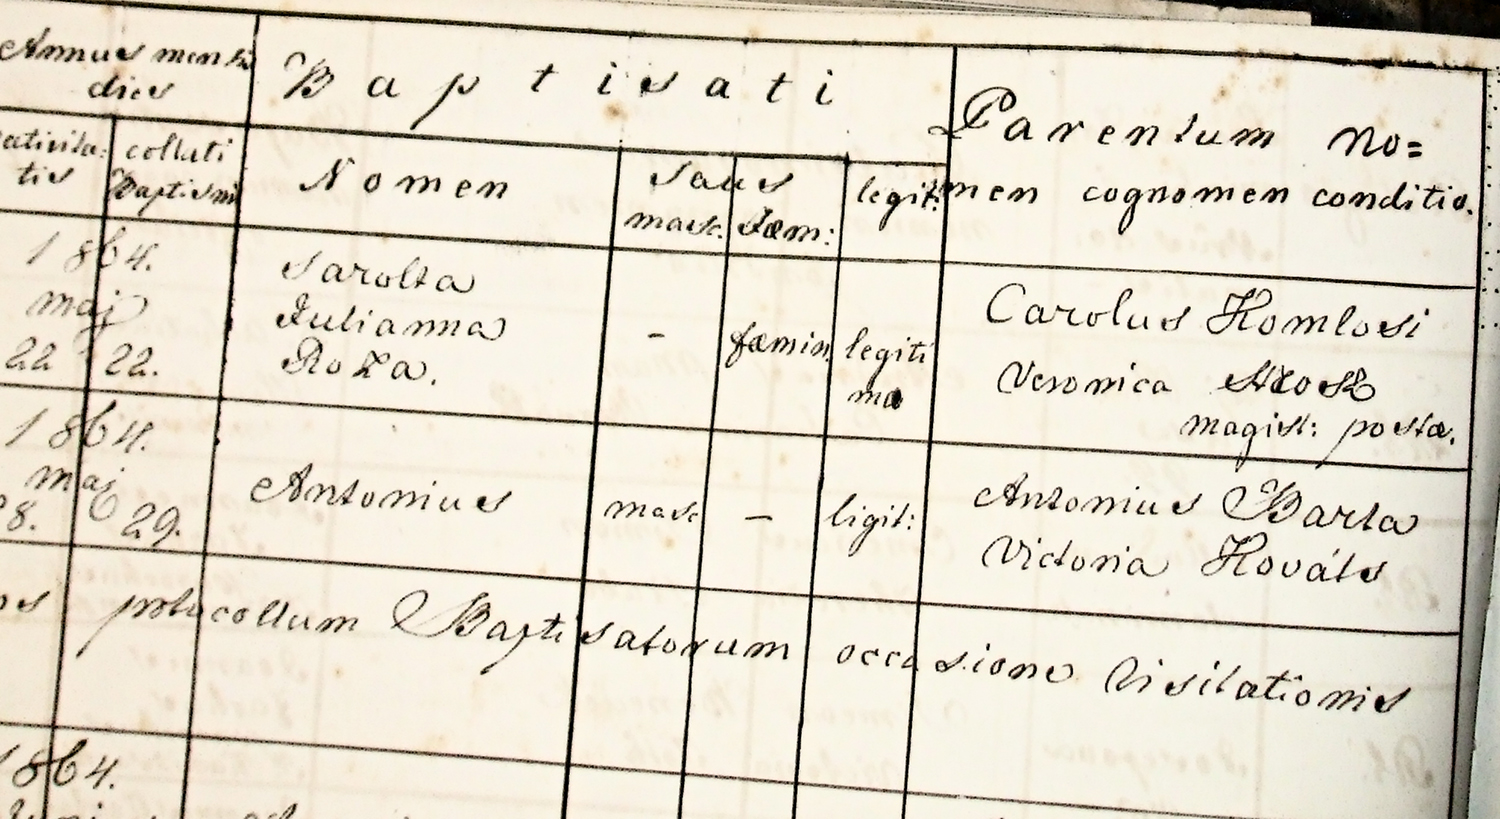 Annus mensis
dies
Baptisati
Parentum no=
men cognomen conditio.
nativita:
tis
collati
Baptismi
Nomen
Saxus
masc.
Fæm:
legit:
1864.
maj
22
22.
Sarolta
Julianna
Roza.
-
fæmin
legiti
ma
Carolus Komlosi
Veronica
magist: postæ.
1864.
maj
28.
29.
Antonius
masc
-
ligit:
Antonius Barta
Victoria Kováts
protocollum Baptisatorum occasione Visitationis
1864.